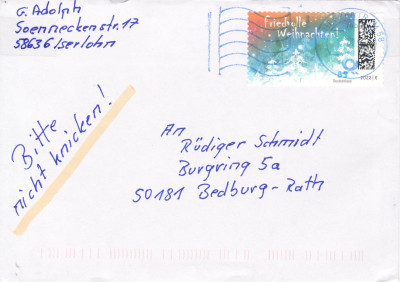 G. Adolph
Soenneckenstr. 17
58636 Iserlohn
Friedvolle
Weihnachten!
Bitte
nicht knicken!
An
Rüdiger Schmidt
Burgring 5a
50181 Bedburg-Rath